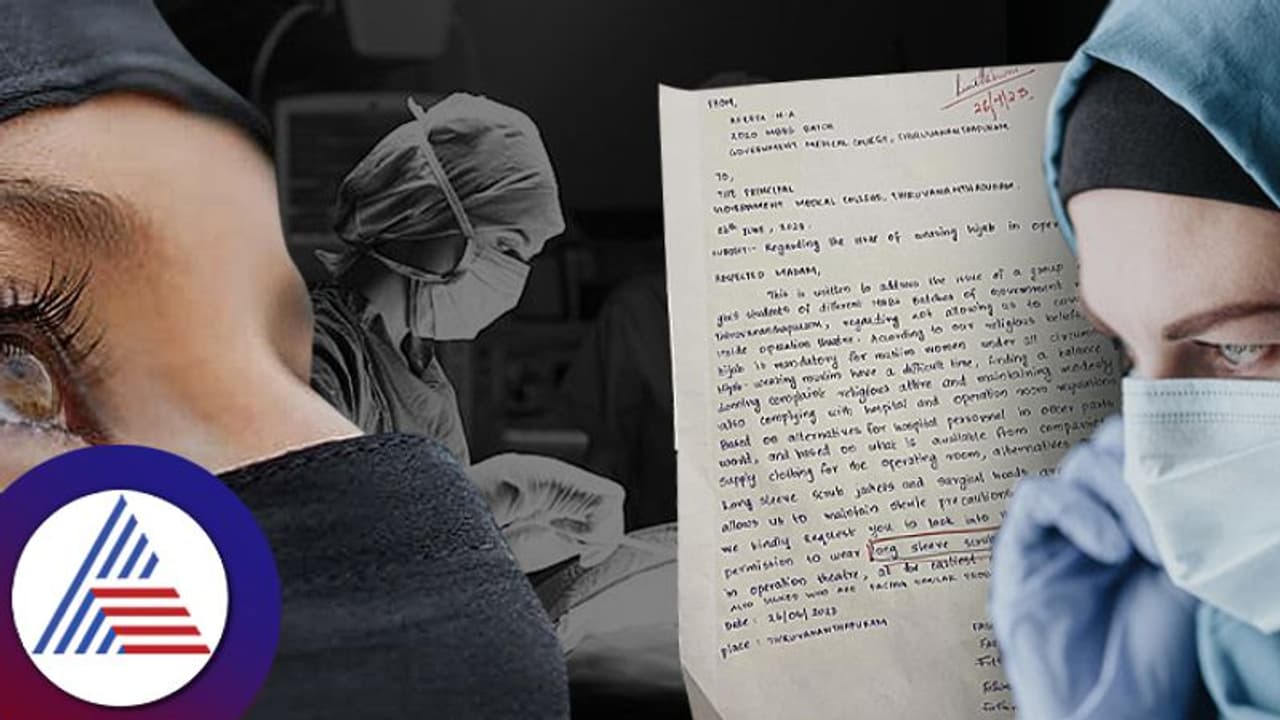 26/6/23
FROM,
2020 MBBS BATCH
GOVERNMENT MEDICAL COLLEGE, THIRUVANANTHAPURAM
TO,
THE PRINCIPAL
GOVERNMENT MEDICAL COLLEGE, THIRUVANANTHAPURAM.
26th JUNE, 2023.
SUBJECT:- Regarding the issue of wearing hijab in oper
RESPECTED MADAM,
This is written to address the issue of a group
girls students of different MBBS batches of Government
Thiruvananthapuram, regarding not allowing us to
inside operation theatre. According to our religious beliefs,
hijab is mandatory for muslim women under all circum
Hijab-wearing muslims have a difficult time, finding a balance
donning compliant religious attire and maintaining modesty
also complying with hospital and operation room regulations
Based on alternatives for hospital personnel in other parts
world, and based on what is available from companies
supply clothing for the operating room, alternatives
Long sleeve scrub jackets and surgical hoods are
allows us to maintain sterile precautions
We kindly request you to look into
permission to wear long sleeve scrub
in operation theatre, at the earliest
Date: 26/06/2023
place: THIRUVANANTHAPURAM